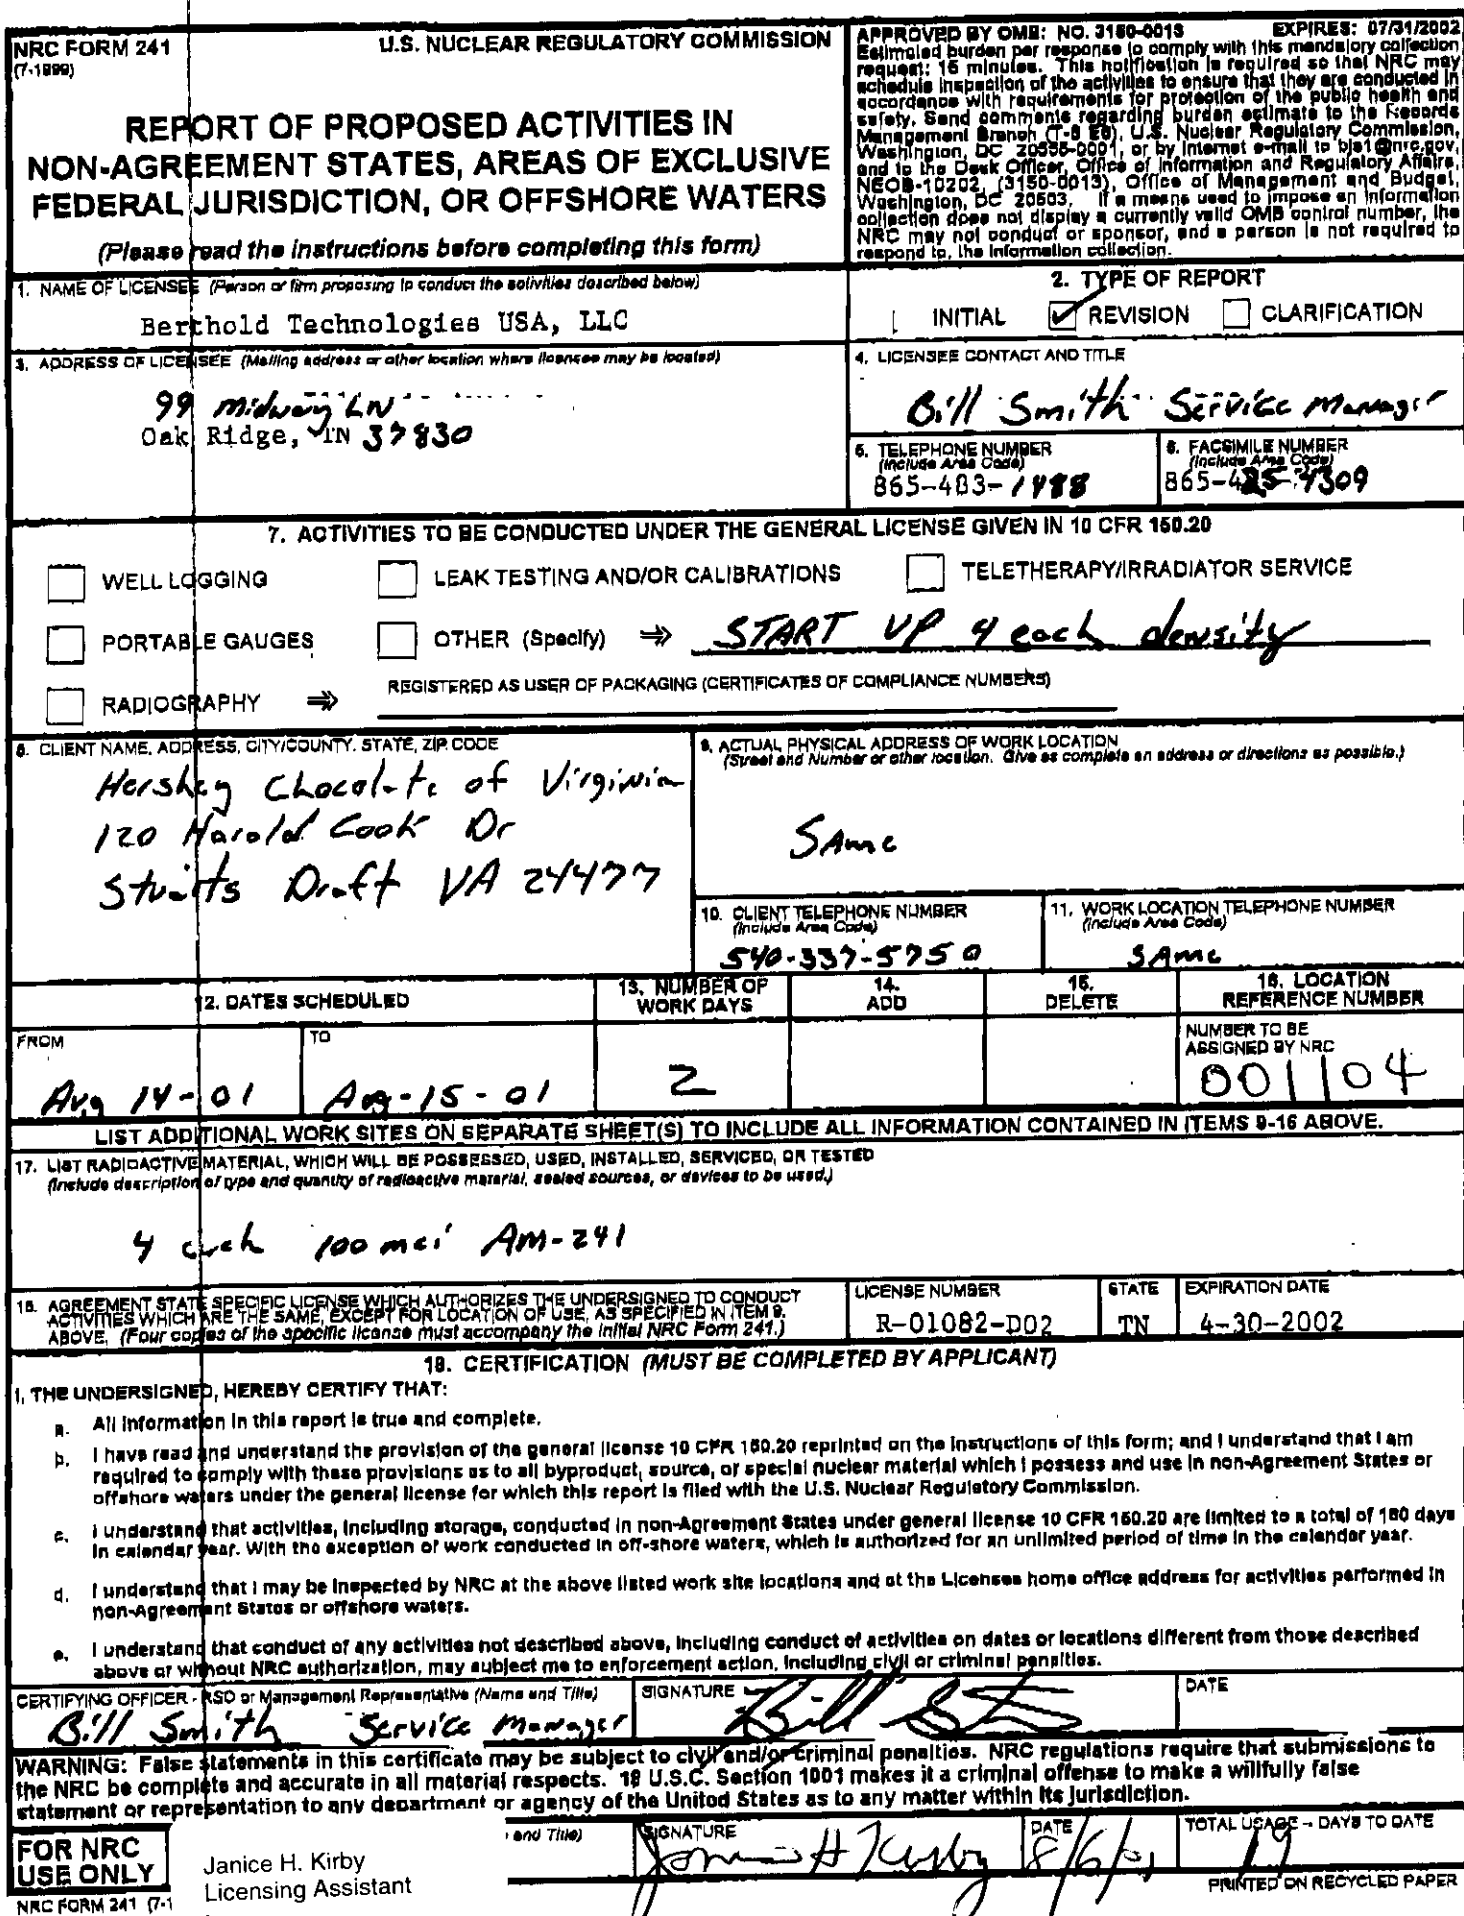 NRC FORM 241
(7-1999)
U.S. NUCLEAR REGULATORY COMMISSION
REPORT OF PROPOSED ACTIVITIES IN
NON-AGREEMENT STATES, AREAS OF EXCLUSIVE
FEDERAL JURISDICTION, OR OFFSHORE WATERS
(Please read the instructions before completing this form)
APPROVED BY OMB: NO. 3150-0013 EXPIRES: 07/31/2002
Estimated burden per response to comply with this mandatory collection
request: 15 minutes. This notification is required so that NRC may
schedule inspection of the activities to ensure that they are conducted in
accordance with requirements for protection of the public health and
safety. Send comments regarding burden estimate to the Records
Management Branch (T-6 E6), U.S. Nuclear Regulatory Commission,
Washington, DC 20555-0001, or by Internet e-mail to bjs1@nrc.gov,
and to the Desk Officer, Office of Information and Regulatory Affairs,
NEOB-10202, (3150-0013), Office of Management and Budget,
Washington, DC 20503. If a means used to impose an information
collection does not display a currently valid OMB control number, the
NRC may not conduct or sponsor, and a person is not required to
respond to, the information collection.
1. NAME OF LICENSEE (Person or firm proposing to conduct the activities described below)
Berthold Technologies USA, LLC
2. TYPE OF REPORT
INITIAL REVISION CLARIFICATION
3. ADDRESS OF LICENSEE (Mailing address or other location where licensee may be located)
99 Midway LN
Oak Ridge, TN 37830
4. LICENSEE CONTACT AND TITLE
Bill Smith Service Manager
5. TELEPHONE NUMBER
(Include Area Code)
865-483-1488
6. FACSIMILE NUMBER
(Include Area Code)
865-425-4309
7. ACTIVITIES TO BE CONDUCTED UNDER THE GENERAL LICENSE GIVEN IN 10 CFR 150.20
WELL LOGGING LEAK TESTING AND/OR CALIBRATIONS TELETHERAPY/IRRADIATOR SERVICE
PORTABLE GAUGES OTHER (Specify) ⇒ START UP 4 each density
RADIOGRAPHY ⇒ REGISTERED AS USER OF PACKAGING (CERTIFICATES OF COMPLIANCE NUMBERS)
8. CLIENT NAME, ADDRESS, CITY/COUNTY, STATE, ZIP CODE
Hershey Chocolate of Virginia
120 Harold Cook Dr
Stuarts Draft VA 24477
9. ACTUAL PHYSICAL ADDRESS OF WORK LOCATION
(Street and Number or other location. Give as complete an address or directions as possible.)
SAme
10. CLIENT TELEPHONE NUMBER
(Include Area Code)
540-337-5750
11. WORK LOCATION TELEPHONE NUMBER
(Include Area Code)
SAme
12. DATES SCHEDULED
13. NUMBER OF
WORK DAYS
14.
ADD
15.
DELETE
16. LOCATION
REFERENCE NUMBER
FROM
Aug 14-01
TO
Aug-15-01
2
NUMBER TO BE
ASSIGNED BY NRC
001104
LIST ADDITIONAL WORK SITES ON SEPARATE SHEET(S) TO INCLUDE ALL INFORMATION CONTAINED IN ITEMS 8-16 ABOVE.
17. LIST RADIOACTIVE MATERIAL, WHICH WILL BE POSSESSED, USED, INSTALLED, SERVICED, OR TESTED
(Include description of type and quantity of radioactive material, sealed sources, or devices to be used.)
4 each 100 mci AM-241
18. AGREEMENT STATE SPECIFIC LICENSE WHICH AUTHORIZES THE UNDERSIGNED TO CONDUCT
ACTIVITIES WHICH ARE THE SAME, EXCEPT FOR LOCATION OF USE, AS SPECIFIED IN ITEM 9,
ABOVE. (Four copies of the specific license must accompany the initial NRC Form 241.)
LICENSE NUMBER
R-01082-D02
STATE
TN
EXPIRATION DATE
4-30-2002
19. CERTIFICATION (MUST BE COMPLETED BY APPLICANT)
I, THE UNDERSIGNED, HEREBY CERTIFY THAT:
a. All information in this report is true and complete.
b. I have read and understand the provision of the general license 10 CFR 150.20 reprinted on the instructions of this form; and I understand that I am
required to comply with these provisions as to all byproduct, source, or special nuclear material which I possess and use in non-Agreement States or
offshore waters under the general license for which this report is filed with the U.S. Nuclear Regulatory Commission.
c. I understand that activities, including storage, conducted in non-Agreement States under general license 10 CFR 150.20 are limited to a total of 180 days
in calendar year. With the exception of work conducted in off-shore waters, which is authorized for an unlimited period of time in the calendar year.
d. I understand that I may be inspected by NRC at the above listed work site locations and at the Licensee home office address for activities performed in
non-Agreement States or offshore waters.
e. I understand that conduct of any activities not described above, including conduct of activities on dates or locations different from those described
above or without NRC authorization, may subject me to enforcement action, including civil or criminal penalties.
CERTIFYING OFFICER - RSO or Management Representative (Name and Title)
Bill Smith Service Manager
SIGNATURE
Bill S
DATE
WARNING: False statements in this certificate may be subject to civil and/or criminal penalties. NRC regulations require that submissions to
the NRC be complete and accurate in all material respects. 18 U.S.C. Section 1001 makes it a criminal offense to make a willfully false
statement or representation to any department or agency of the United States as to any matter within its jurisdiction.
FOR NRC
USE ONLY
and Title)
Janice H. Kirby
Licensing Assistant
SIGNATURE
Janice H Kirby
DATE
8/6/01
TOTAL USAGE - DAYS TO DATE
19
NRC FORM 241 (7-1
PRINTED ON RECYCLED PAPER